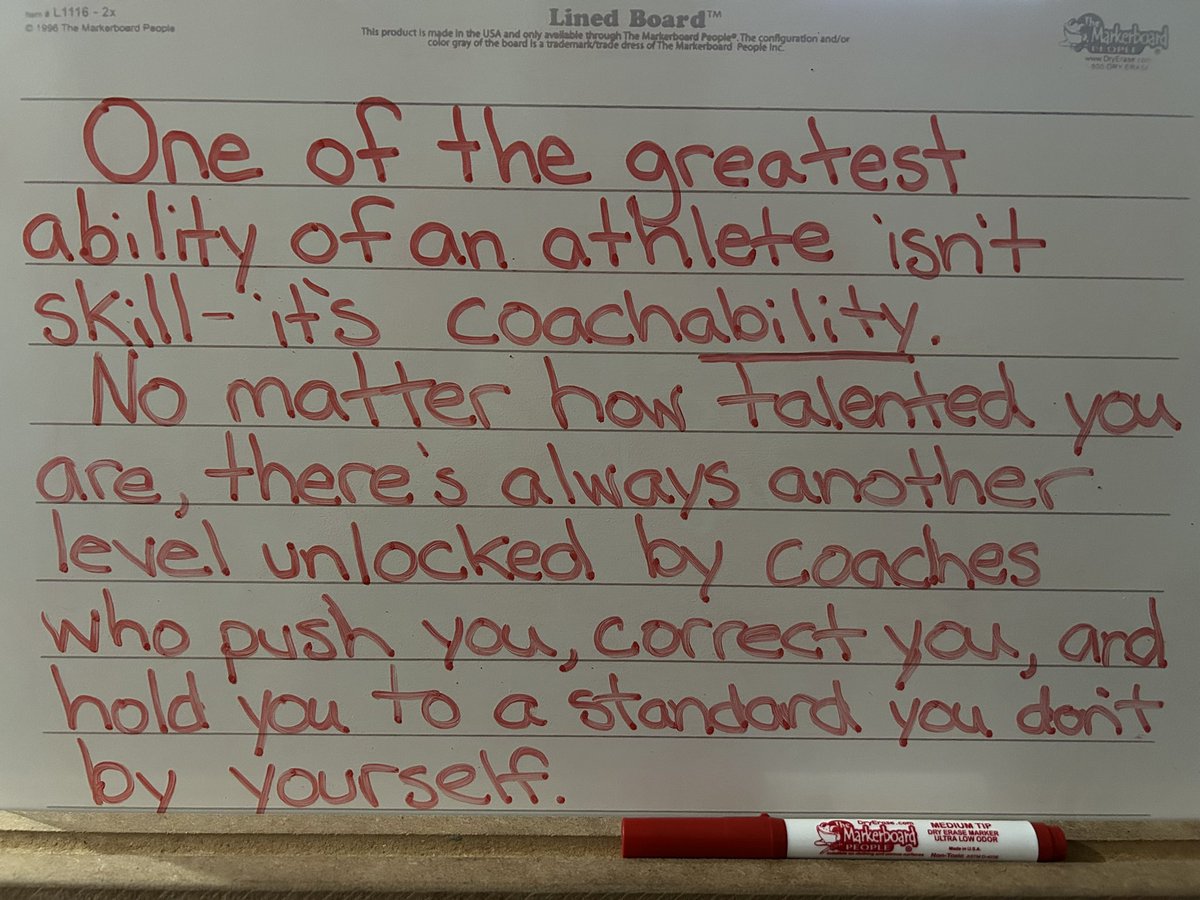 Item # L1116 - 2x
© 1996 The Markerboard People
Lined Board™
This product is made in the USA and only available through The Markerboard People®. The configuration and/or
color gray of the board is a trademark/trade dress of The Markerboard People Inc.
The
Markerboard
PEOPLE
www.DryErase.com
One of the greatest
ability of an athlete isn't
skill- it's coachability.
No matter how talented you
are, there's always another
level unlocked by coaches
who push you, correct you, and
hold you to a standard you don't
by yourself.
DryErase.com
The
Markerboard
PEOPLE
MEDIUM TIP
DRY ERASE MARKER
ULTRA LOW ODOR
Made in U.S.A.
Non-Toxic